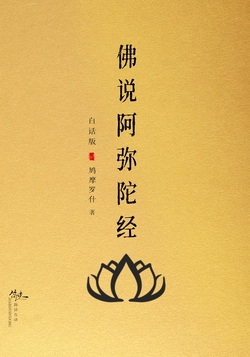 佛说阿弥陀经
白话版
鸠摩罗什 著